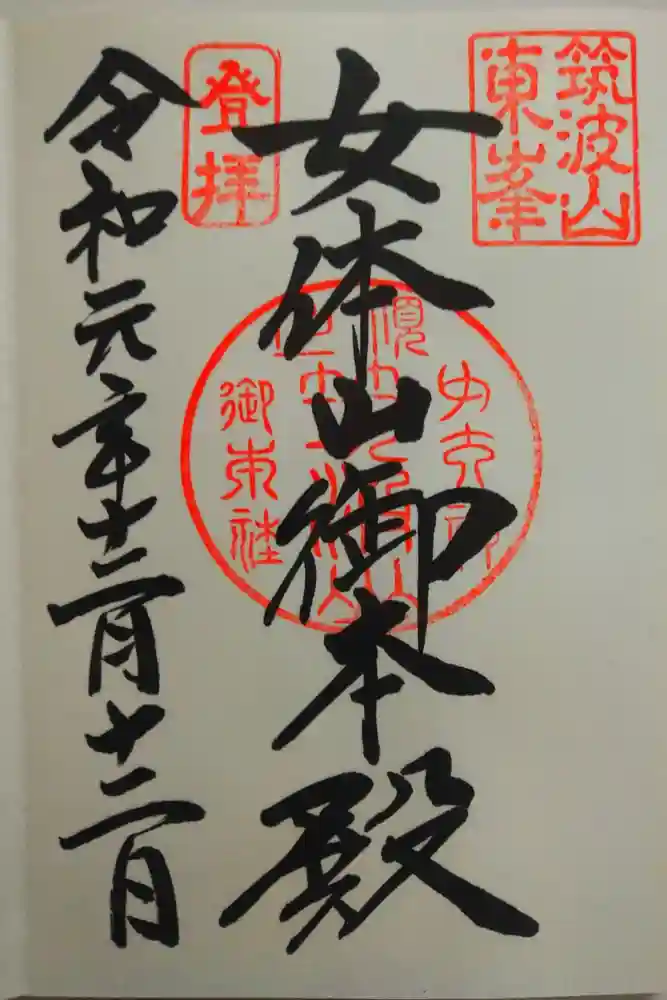 筑波山
東峯
女体山御本殿
登拝
令和元年十二月十二日